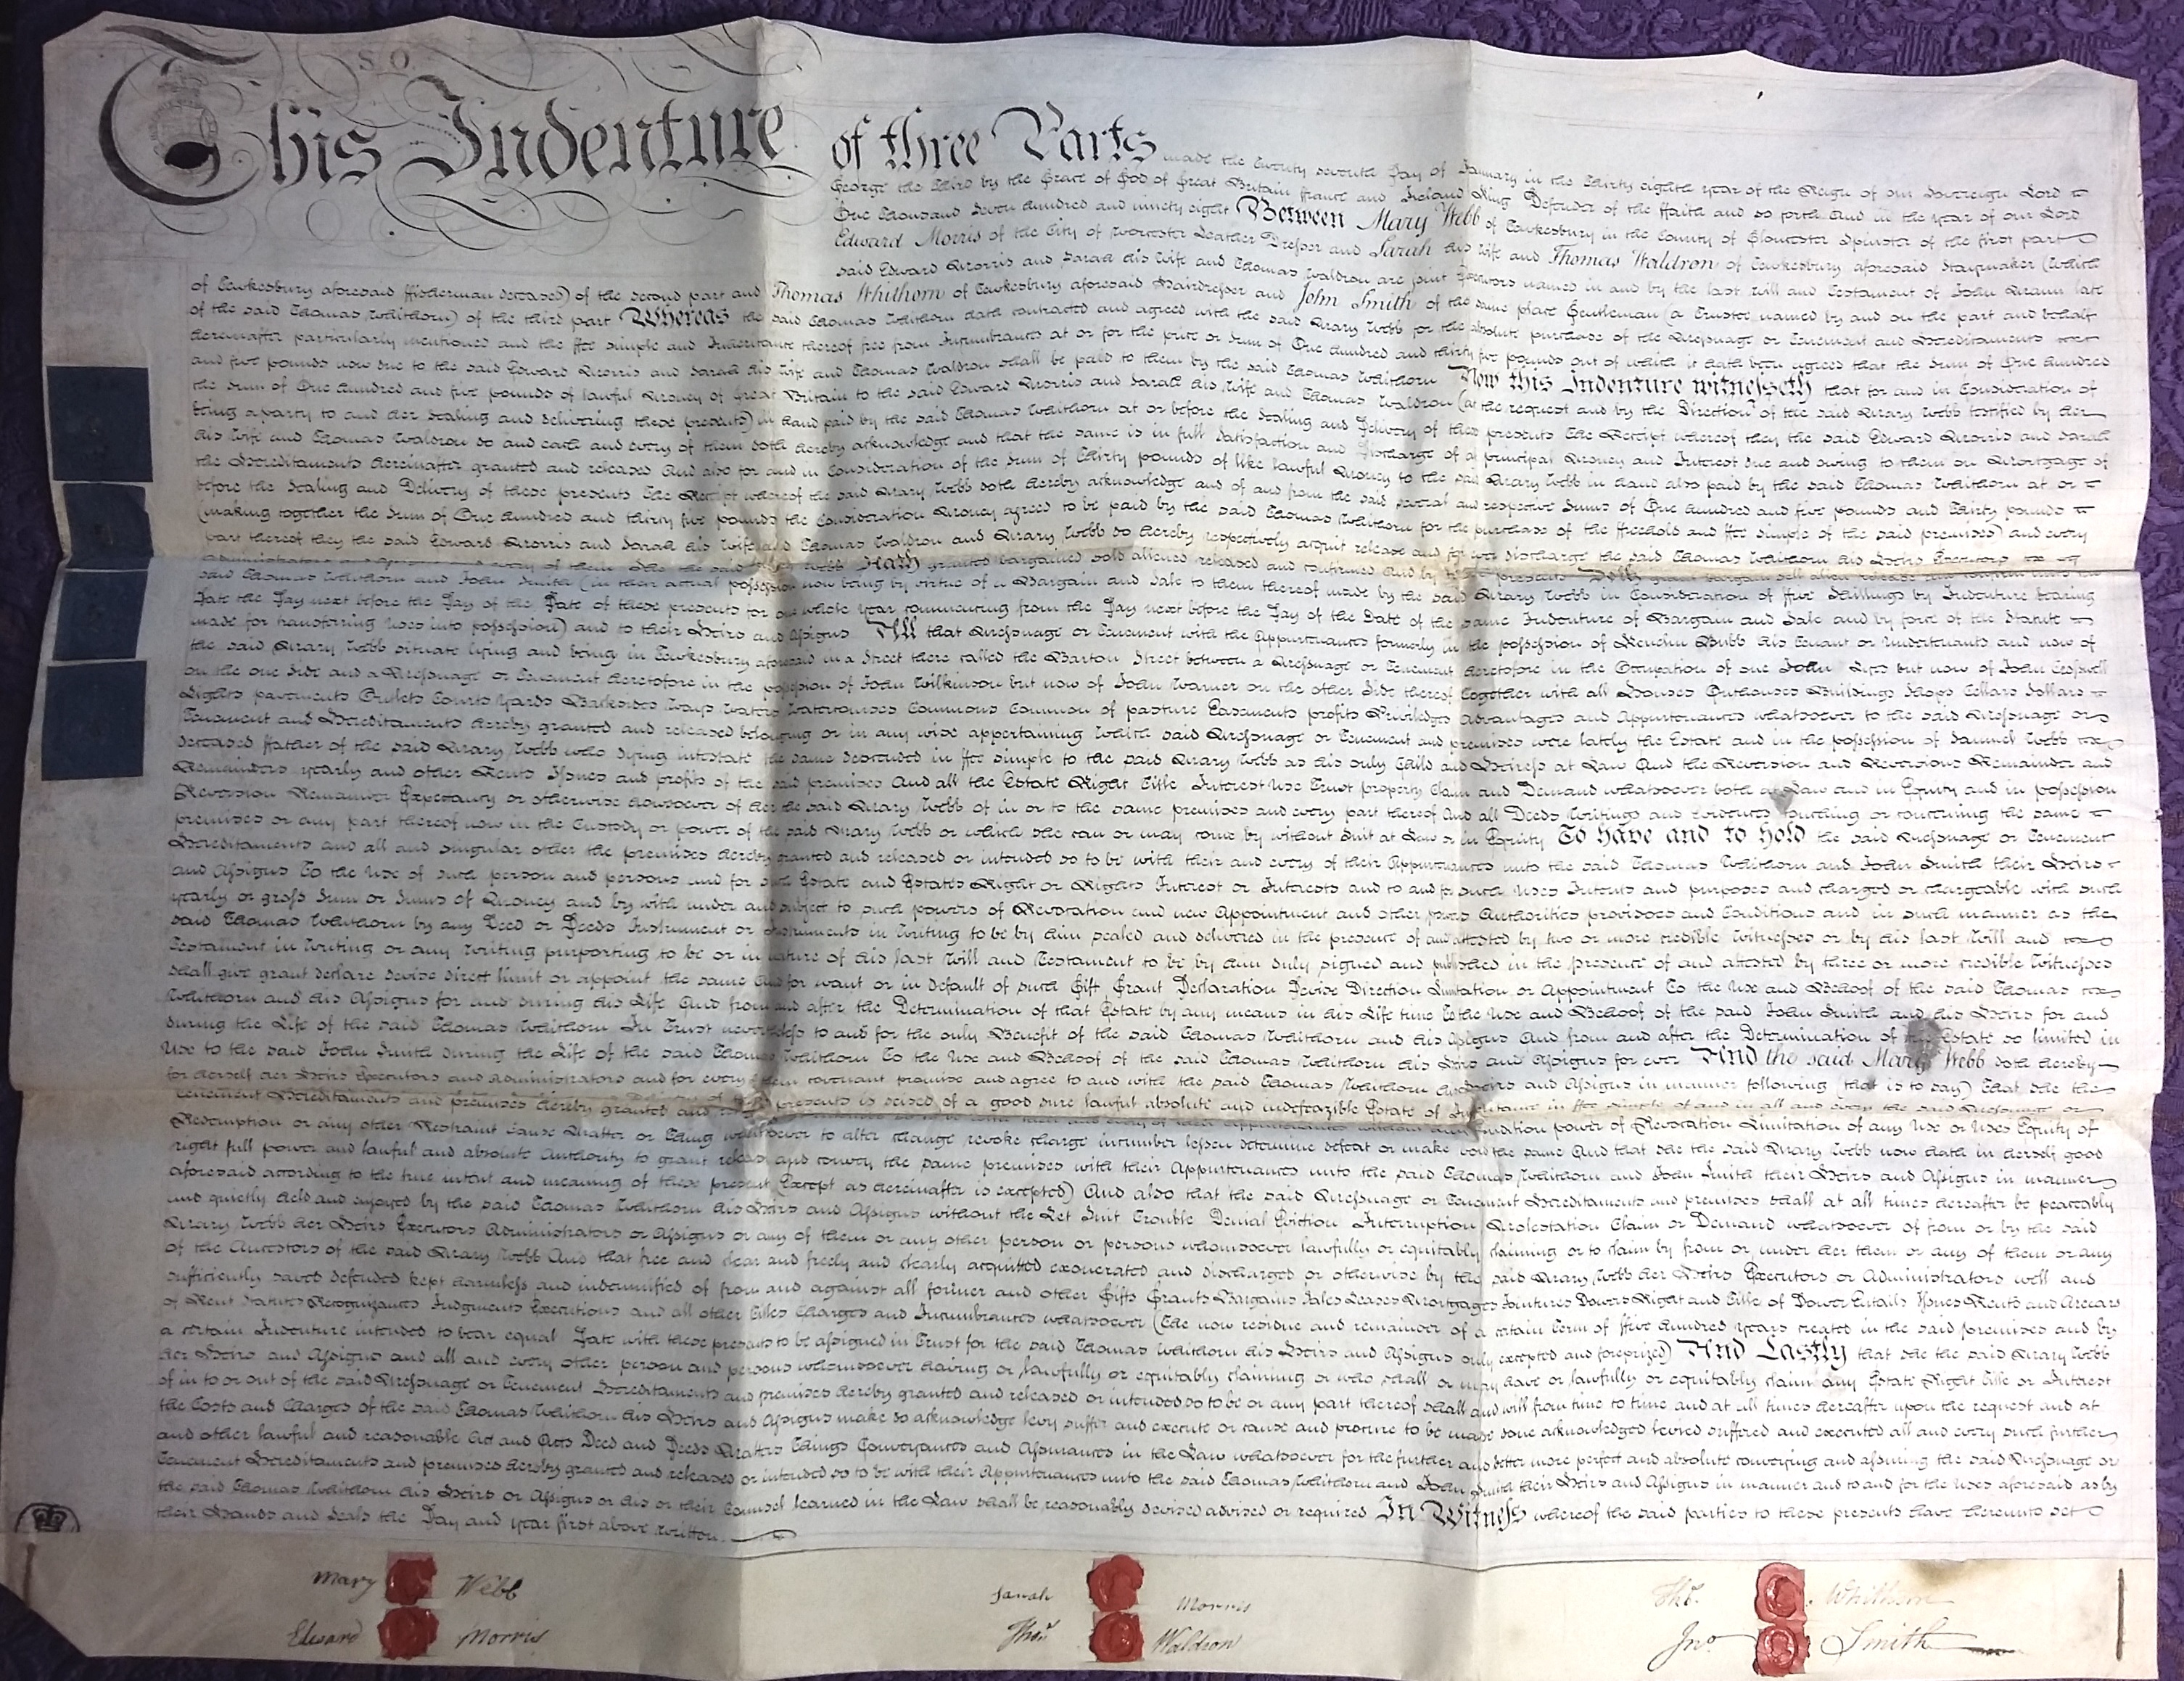 This Indenture of three Parts made the Twenty seventh Day of January in the Thirty eighth year of the Reign of our Sovereign Lord
George the Third by the Grace of God of Great Britain france and Ireland King Defender of the ffaith and so forth And in the year of our Lord
One thousand Seven hundred and ninety eight Between Mary Webb of Tewkesbury in the County of Gloucester Spinster of the first part
Edward Morris of the City of Worcester Leather Dresser and Sarah his Wife and Thomas Waldron of Tewkesbury aforesaid Staymaker (Which
said Edward Morris and Sarah his Wife and Thomas Waldron are joint Executors named in and by the last Will and Testament of John Mann late
of Tewkesbury aforesaid ffisherman deceased) of the second part and Thomas Whithorn of Tewkesbury aforesaid Hairdresser and John Smith of the same place Gentleman (a Trustee named by and on the part and behalf
of the said Thomas Whithorn) of the third part Whereas the said Thomas Whithorn hath contracted and agreed with the said Mary Webb for the absolute purchase of the Messuage or Tenement and Hereditaments
hereinafter particularly mentioned and the ffee simple and Inheritance thereof free from Incumbrances at or for the price or Sum of One hundred and thirty five pounds out of which it hath been agreed that the Sum of One hundred
and five pounds now due to the said Edward Morris and Sarah his Wife and Thomas Waldron shall be paid to them by the said Thomas Whithorn Now this Indenture witnesseth that for and in Consideration of
the Sum of One hundred and five pounds of lawful Money of Great Britain to the said Edward Morris and Sarah his Wife and Thomas Waldron (at the request and by the Direction of the said Mary Webb testified by her
being a party to and her Sealing and delivering these presents) in hand paid by the said Thomas Whithorn at or before the Sealing and Delivery of these presents The Receipt whereof they the said Edward Morris and Sarah
his Wife and Thomas Waldron do and each and every of them doth hereby acknowledge and that the same is in full Satisfaction and Discharge of all principal Money and Interest due and owing to them on Mortgage of
the Hereditaments hereinafter granted and released And also for and in Consideration of the Sum of Thirty pounds of like lawful Money to the said Mary Webb in hand also paid by the said Thomas Whithorn at or
before the Sealing and Delivery of these presents The Receipt whereof the said Mary Webb doth hereby acknowledge and of and from the said several and respective Sums of One hundred and five pounds and Thirty pounds
(making together the Sum of One hundred and thirty five pounds the Consideration Money agreed to be paid by the said Thomas Whithorn for the purchase of the ffreehold and ffee simple of the said premises) and every
part thereof they the said Edward Morris and Sarah his Wife and Thomas Waldron and Mary Webb do hereby respectively acquit release and for ever discharge the said Thomas Whithorn his Heirs Executors
Administrators and Assigns and every of them She the said Mary Webb Hath granted bargained sold aliened released and confirmed And by these presents Doth grant bargain sell alien release and confirm unto the
said Thomas Whithorn and John Smith (in their actual possession now being by virtue of a Bargain and Sale to them thereof made by the said Mary Webb in Consideration of ffive Shillings by Indenture bearing
Date the Day next before the Day of the Date of these presents for one whole year commencing from the Day next before the Day of the Date of the same Indenture of Bargain and Sale and by force of the Statute
made for transferring Uses into possession) and to their Heirs and Assigns All that Messuage or Tenement with the Appurtenances formerly in the possession of Bubb his Tenant or Undertenants and now of
the said Mary Webb situate lying and being in Tewkesbury aforesaid in a Street there called the Barton Street between a Messuage or Tenement heretofore in the Occupation of one John but now of John
on the one Side and a Messuage or Tenement heretofore in the possession of John Wilkinson but now of John Warner on the other Side thereof Together with all Houses Outhouses Buildings Shops Cellars Sollars
Lights pavements Outlets Courts Yards Backsides Ways Waters Watercourses Commons Common of pasture Easements profits Priviledges advantages and Appurtenances whatsoever to the said Messuage or
Tenement and Hereditaments hereby granted and released belonging or in any wise appertaining Which said Messuage or Tenement and premises were lately the Estate and in the possession of Samuel Webb
deceased ffather of the said Mary Webb who dying intestate the same descended in ffee simple to the said Mary Webb as his only Child and Heiress at Law And the Reversion and Reversions Remainder and
Remainders yearly and other Rents Issues and profits of the said premises And all the Estate Right Title Interest Use Trust property Claim and Demand whatsoever both at Law and in Equity and in possession
Reversion Remainder Expectancy or otherwise howsoever of her the said Mary Webb of in or to the same premises and every part thereof And all Deeds Writings and Evidences touching or concerning the same
premises or any part thereof now in the Custody or power of the said Mary Webb or which she can or may come by without Suit at Law or in Equity To have and to hold the said Messuage or Tenement
Hereditaments and all and singular other the premises hereby granted and released or intended so to be with their and every of their Appurtenances unto the said Thomas Whithorn and John Smith their Heirs
and Assigns To the Use of such person and persons and for such Estate and Estates Right or Rights Interest or Interests and to and for such Uses Intents and purposes and charged or chargeable with such
yearly or gross Sum or Sums of Money and by with under and subject to such powers of Revocation and new Appointment and other powers Authorities provisoes and Conditions and in such manner as the
said Thomas Whithorn by any Deed or Deeds Instrument or Instruments in Writing to be by him sealed and delivered in the presence of and attested by two or more credible Witnesses or by his last Will and
Testament in Writing or any Writing purporting to be or in nature of his last Will and Testament to be by him duly signed and published in the presence of and attested by three or more credible Witnesses
shall give grant declare devise direct limit or appoint the same And for want or in default of such Gift Grant Declaration Devise Direction Limitation or Appointment To the Use and Behoof of the said Thomas
Whithorn and his Assigns for and during his Life And from and after the Determination of that Estate by any means in his Life time To the Use and Behoof of the said John Smith and his Heirs for and
during the Life of the said Thomas Whithorn In Trust nevertheless to and for the only Benefit of the said Thomas Whithorn and his Assigns And from and after the Determination of the Estate so limited in
Use to the said John Smith during the Life of the said Thomas Whithorn To the Use and Behoof of the said Thomas Whithorn his Heirs and Assigns for ever And the said Mary Webb doth hereby
for herself her Heirs Executors and Administrators and for every of them covenant promise and agree to and with the said Thomas Whithorn his Heirs and Assigns in manner following (that is to say) That she the
presents is seised of a good sure lawful absolute and indefeazible Estate of Inheritance in ffee simple of and in all and every the said Messuage or
Tenement Hereditaments and premises hereby granted and
Redemption or any other Restraint Cause Matter or Thing whatsoever to alter change revoke charge incumber lessen determine defeat or make void the same And that she the said Mary Webb now hath in herself good
right full power and lawful and absolute Authority to grant release and convey the same premises with their Appurtenances unto the said Thomas Whithorn and John Smith their Heirs and Assigns in manner
aforesaid according to the true intent and meaning of these presents (Except as hereinafter is excepted) And also that the said Messuage or Tenement Hereditaments and premises shall at all times hereafter be peaceably
and quietly held and enjoyed by the said Thomas Whithorn his Heirs and Assigns without the Let Suit Trouble Denial Eviction Interruption Molestation Claim or Demand whatsoever of from or by the said
Mary Webb her Heirs Executors Administrators or Assigns or any of them or any other person or persons whomsoever lawfully or equitably claiming or to claim by from or under her them or any of them or any
of the Ancestors of the said Mary Webb And that free and clear and freely and clearly acquitted exonerated and discharged or otherwise by the said Mary Webb her Heirs Executors or Administrators well and
sufficiently saved defended kept harmless and indemnified of from and against all former and other Gifts Grants Bargains Sales Leases Mortgages Jointures Dowers Right and Title of Dower Entails Issues Rents and Arrears
of Rent Statutes Recognizances Judgments Executions and all other Titles Charges and Incumbrances whatsoever (The now residue and remainder of a certain Term of ffive hundred years created in the said premises and by
a certain Indenture intended to bear equal Date with these presents to be assigned in Trust for the said Thomas Whithorn his Heirs and Assigns only excepted and foreprized) And Lastly that she the said Mary Webb
her Heirs and Assigns and all and every other person and persons whomsoever having or lawfully or equitably claiming or who shall or may have or lawfully or equitably claim any Estate Right Title or Interest
of in to or out of the said Messuage or Tenement Hereditaments and premises hereby granted and released or intended so to be or any part thereof shall and will from time to time and at all times hereafter upon the request and at
the Costs and Charges of the said Thomas Whithorn his Heirs and Assigns make do acknowledge levy suffer and execute or cause and procure to be made done acknowledged levied suffered and executed all and every such further
and other lawful and reasonable Act and Acts Deed and Deeds Matters Things Conveyances and Assurances in the Law whatsoever for the further and better more perfect and absolute conveying and assuring the said Messuage or
Tenement Hereditaments and premises hereby granted and released or intended so to be with their Appurtenances unto the said Thomas Whithorn and John Smith their Heirs and Assigns in manner and to and for the Uses aforesaid as by
the said Thomas Whithorn his Heirs or Assigns or his or their Counsel learned in the Law shall be reasonably devised advised or required In Witness whereof the said parties to these presents have hereunto set
their Hands and Seals the Day and year first above written
Mary Webb
Sarah Morris
Tho.s Whithorn
Edward Morris
Thos Waldron
Jno Smith